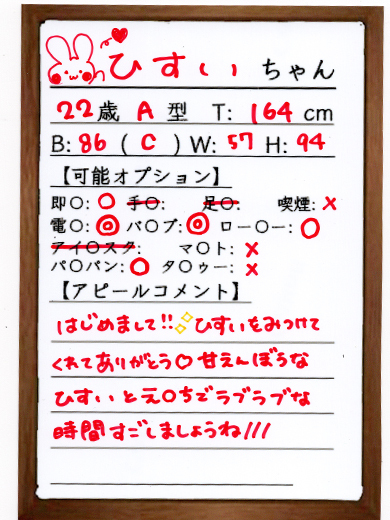 ひすい ちゃん
22歳 A型 T: 164 cm
B: 86 ( C ) W: 57 H: 94
【可能オプション】
即〇: ○ 手〇: 足〇: 喫煙: ×
電〇: ◎ バ〇ブ: ◎ ロー〇ー: ○
アイ〇スタ: マ〇ト: ×
パ〇パン: ○ タ〇ゥー: ×
【アピールコメント】
はじめまして!! ひすいをみつけて
くれてありがとう♡ 甘えんぼうな
ひすいとえ〇ちでラブラブな
時間すごしましょうね///